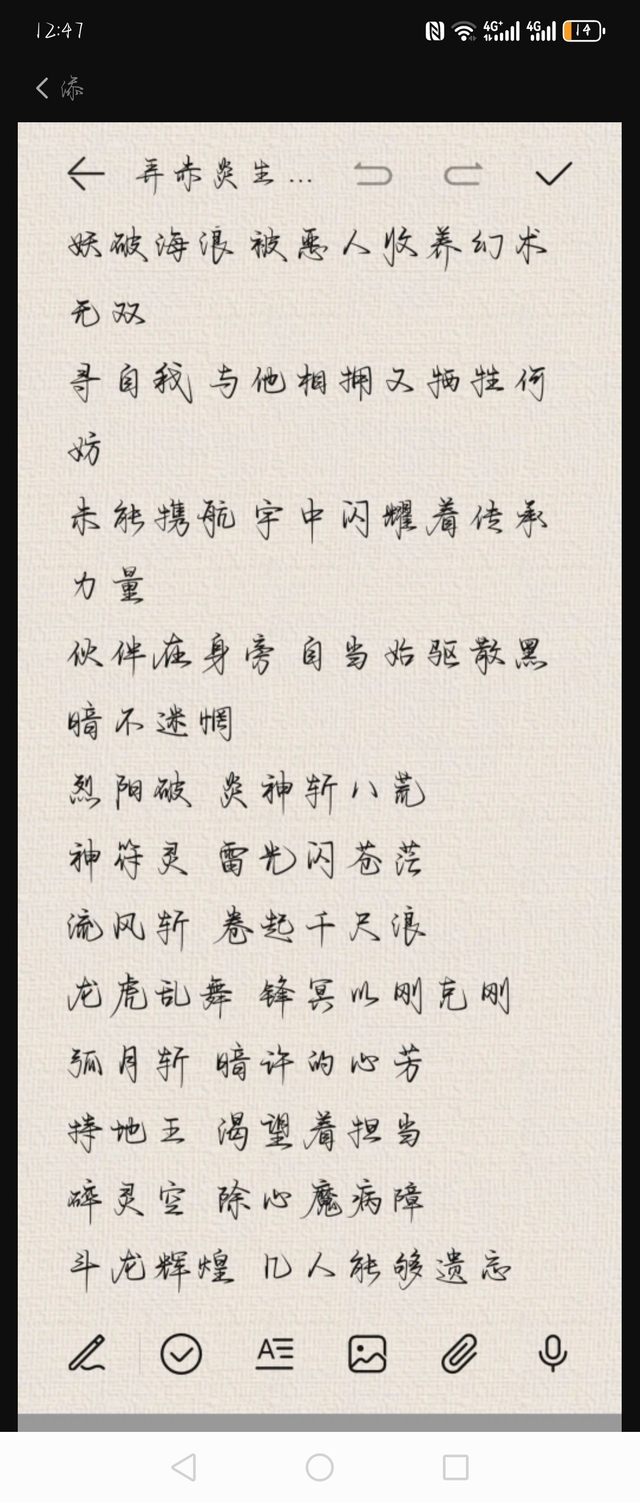 12:47
4G+ 4G 14
添
弄赤炎生...
妖破海浪 被恶人收养幻术
无双
寻自我 与他相拥又牺牲何
妨
未能携航 宇中闪耀着传承
力量
伙伴在身旁 自当始驱散黑
暗不迷惘
烈阳破 炎神斩八荒
神符灵 雷光闪苍茫
流风斩 卷起千尺浪
龙虎乱舞 锋冥以刚克刚
弧月斩 暗许的心芳
持地王 渴望着担当
碎灵空 除心魔病障
斗龙辉煌 几人能够遗忘
A